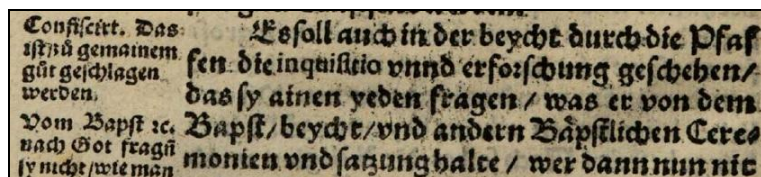 Confiscirt. Das
ist zů gemainem
gůt geschlagen
werden.
Vom Bapst ꝛc.
nach Got fragñ
sy nicht / wie man
Es soll auch in der beycht durch die Pfaf
fen die inquisitio vnnd erforschung geschehen /
das sy ainen yeden fragen / was er von dem
Bapst / beycht / vnd andern Bäpstlichen Cere⸗
monien vnd satzung halte / wer dann nun nit